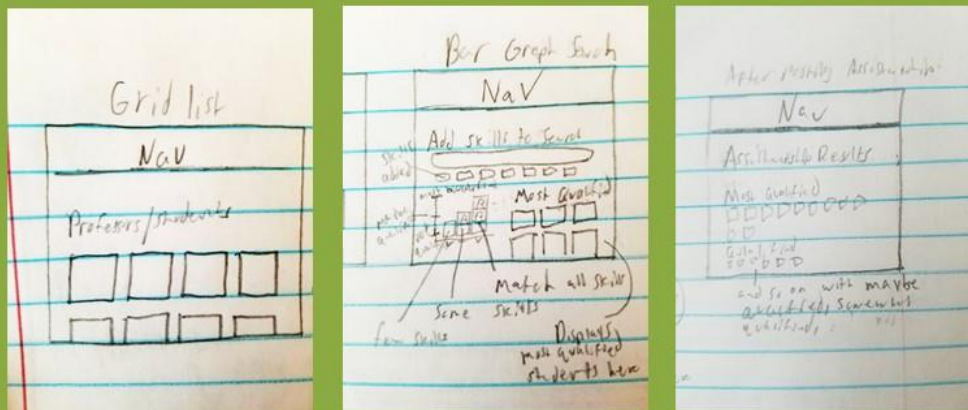 Grid list
Nav
Professors/students
Bar Graph Search
Nav
Add skills to Search
skills
added
Most Qualified
Match all skills
Some skills
few skills
Displays
most qualified
students here
After Posting Assistantship
Nav
Assistantship Results
Most Qualified
Qualified
and so on with maybe
qualified, somewhat
qualified,